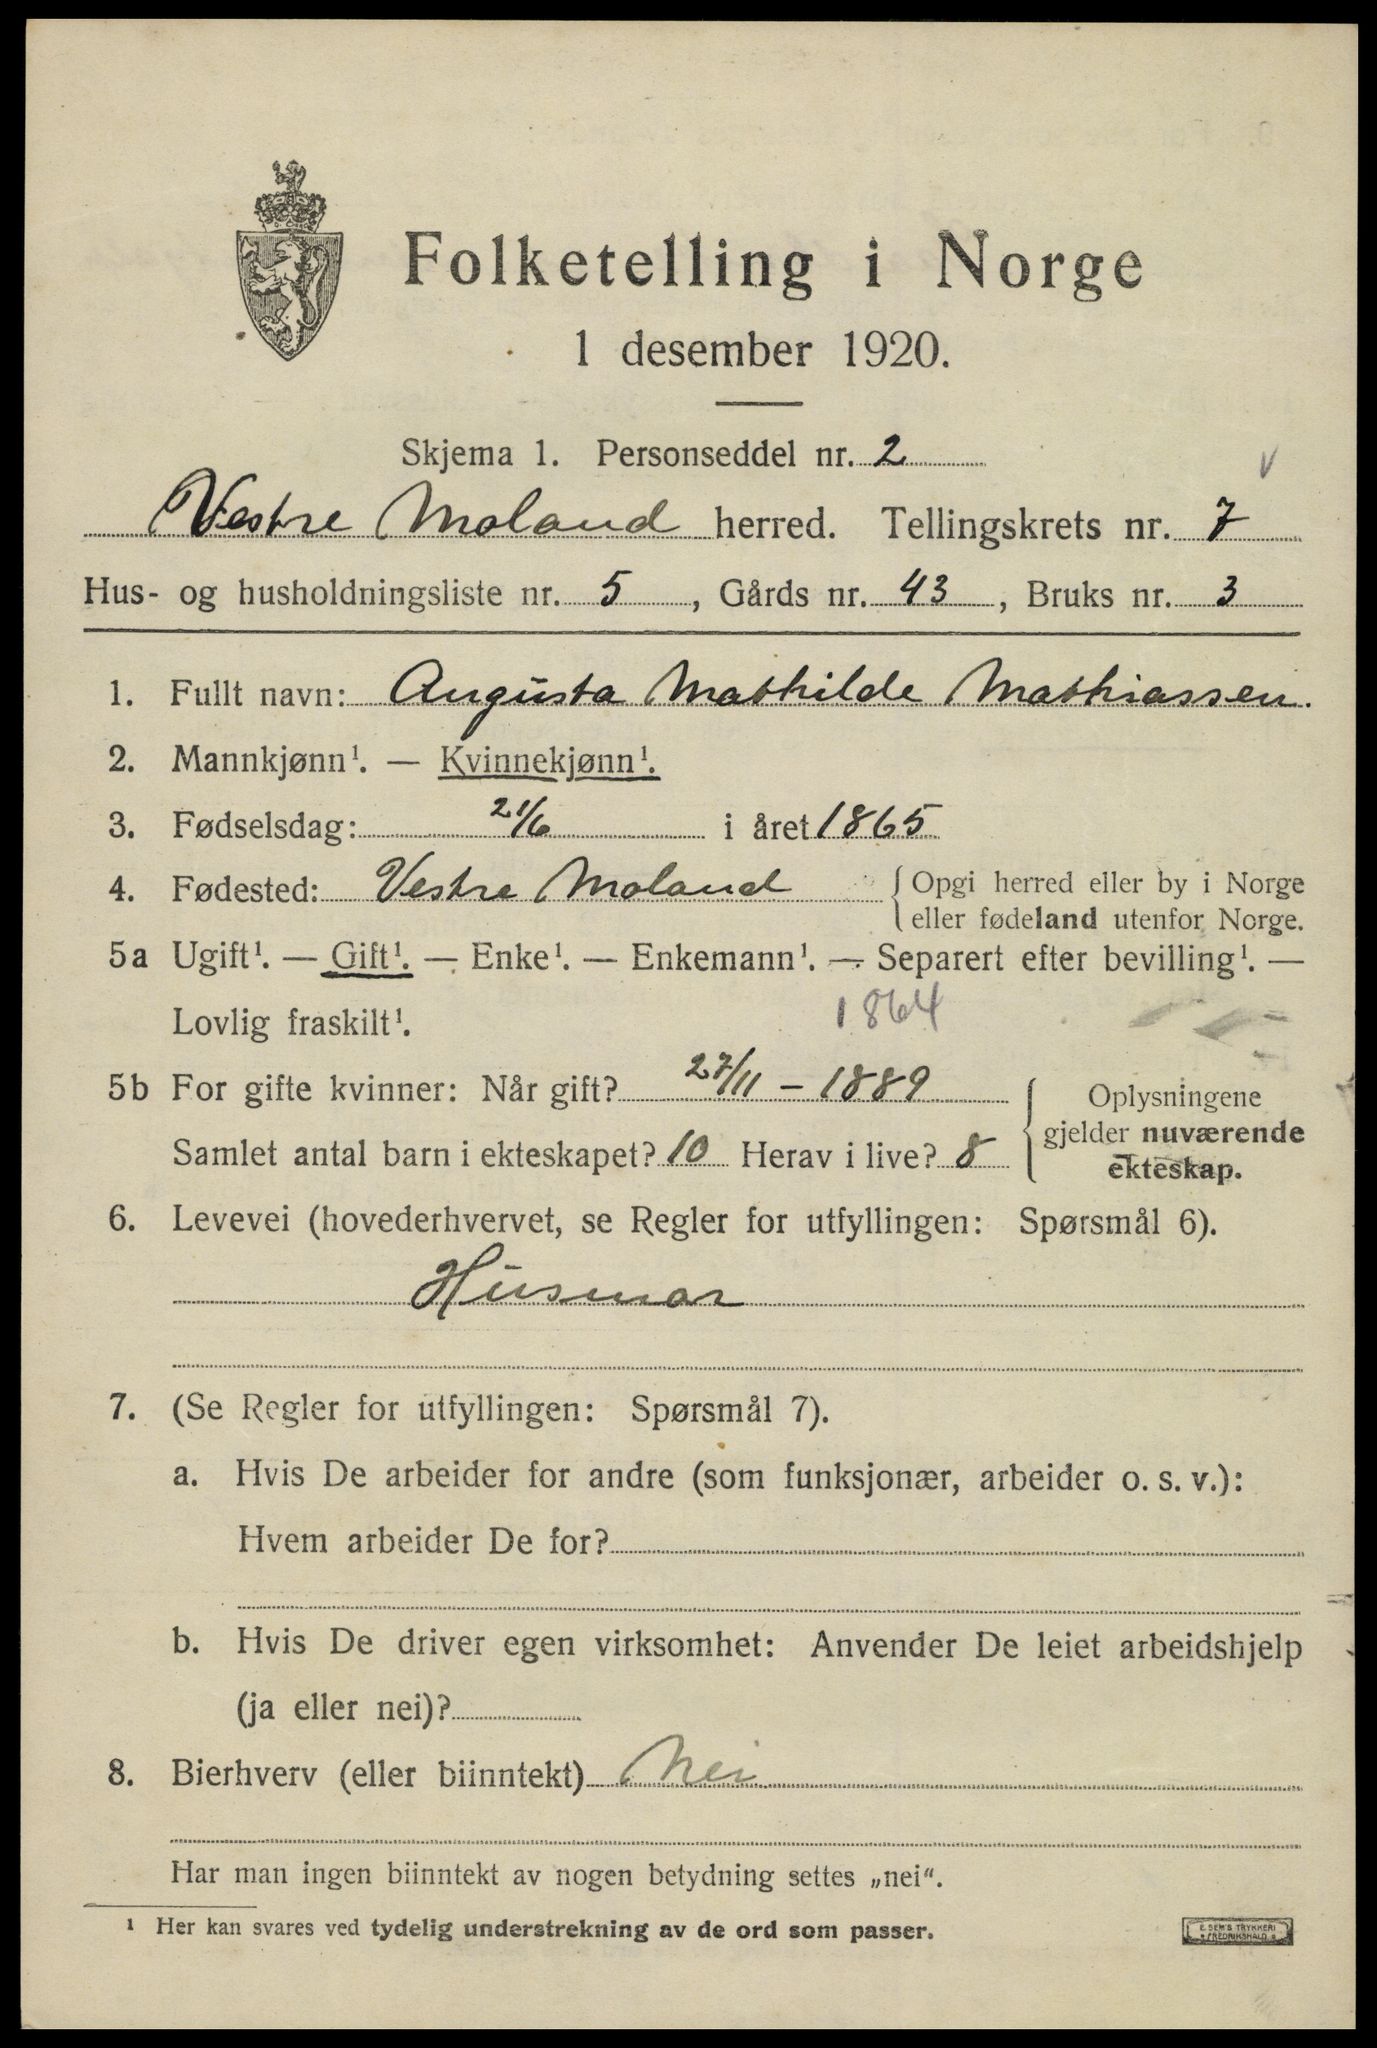 Folketelling i Norge
1 desember 1920.
Skjema 1. Personseddel nr. 2
Vestre Moland herred. Tellingskrets nr. 7
Hus- og husholdningsliste nr. 5, Gårds nr. 43, Bruks nr. 3
1. Fullt navn: Augusta Mathilde Mathiassen.
2. Mannkjønn¹. — Kvinnekjønn¹.
3. Fødselsdag: 21/6 i året 1865
4. Fødested: Vestre Moland { Opgi herred eller by i Norge
eller fødeland utenfor Norge.
5a Ugift¹. — Gift¹. — Enke¹. — Enkemann¹. — Separert efter bevilling¹. —
Lovlig fraskilt¹. 1864
5b For gifte kvinner: Når gift? 27/11 - 1889
Samlet antal barn i ekteskapet? 10 Herav i live? 8
{ Oplysningene
gjelder nuværende
ekteskap.
6. Levevei (hovederhvervet, se Regler for utfyllingen: Spørsmål 6).
Husmor
7. (Se Regler for utfyllingen: Spørsmål 7).
a. Hvis De arbeider for andre (som funksjonær, arbeider o. s. v.):
Hvem arbeider De for?
b. Hvis De driver egen virksomhet: Anvender De leiet arbeidshjelp
(ja eller nei)?
8. Bierhverv (eller biinntekt) Nei
Har man ingen biinntekt av nogen betydning settes „nei“.
¹ Her kan svares ved tydelig understrekning av de ord som passer.
E. SEM'S TRYKKERI
FREDRIKSHALD